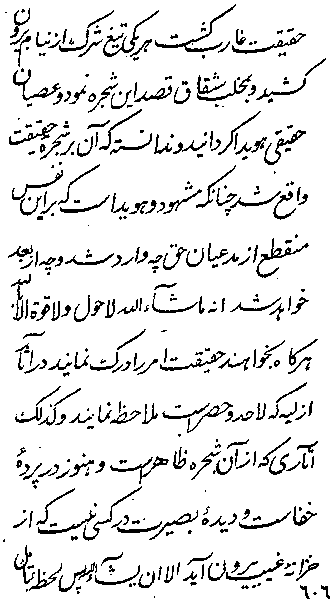 حقیقت غارب گشت هر یکی تیغ شرک از نیام برون
کشید و بمخلب شقاق قصد این شجره نمود و عصیان
حقیقی هویدا گردانید و ندانسته که آن بر شجرهٔ حقیقت
واقع شد چنانکه مشهود و هویداست که بر این نفس
منقطع از مدعیان حق چه وارد شد و چه از بعد
خواهد شد انه ماشآء الله لا حول و لا قوة الا بالله
هرگاه بخواهند حقیقت امر را درک نمایند در آثار
ازلیه که لاحد و حصر است ملاحظه نمایند و کذلک
آثاری که از آن شجره ظاهر است و هنوز در پردهٔ
خفاست و دیدهٔ بصیرت در کسی نیست که از
خزانهٔ غیب بیرون آید الا ان یشآء الله پس لحظهٔ تأمل
۶۰۶